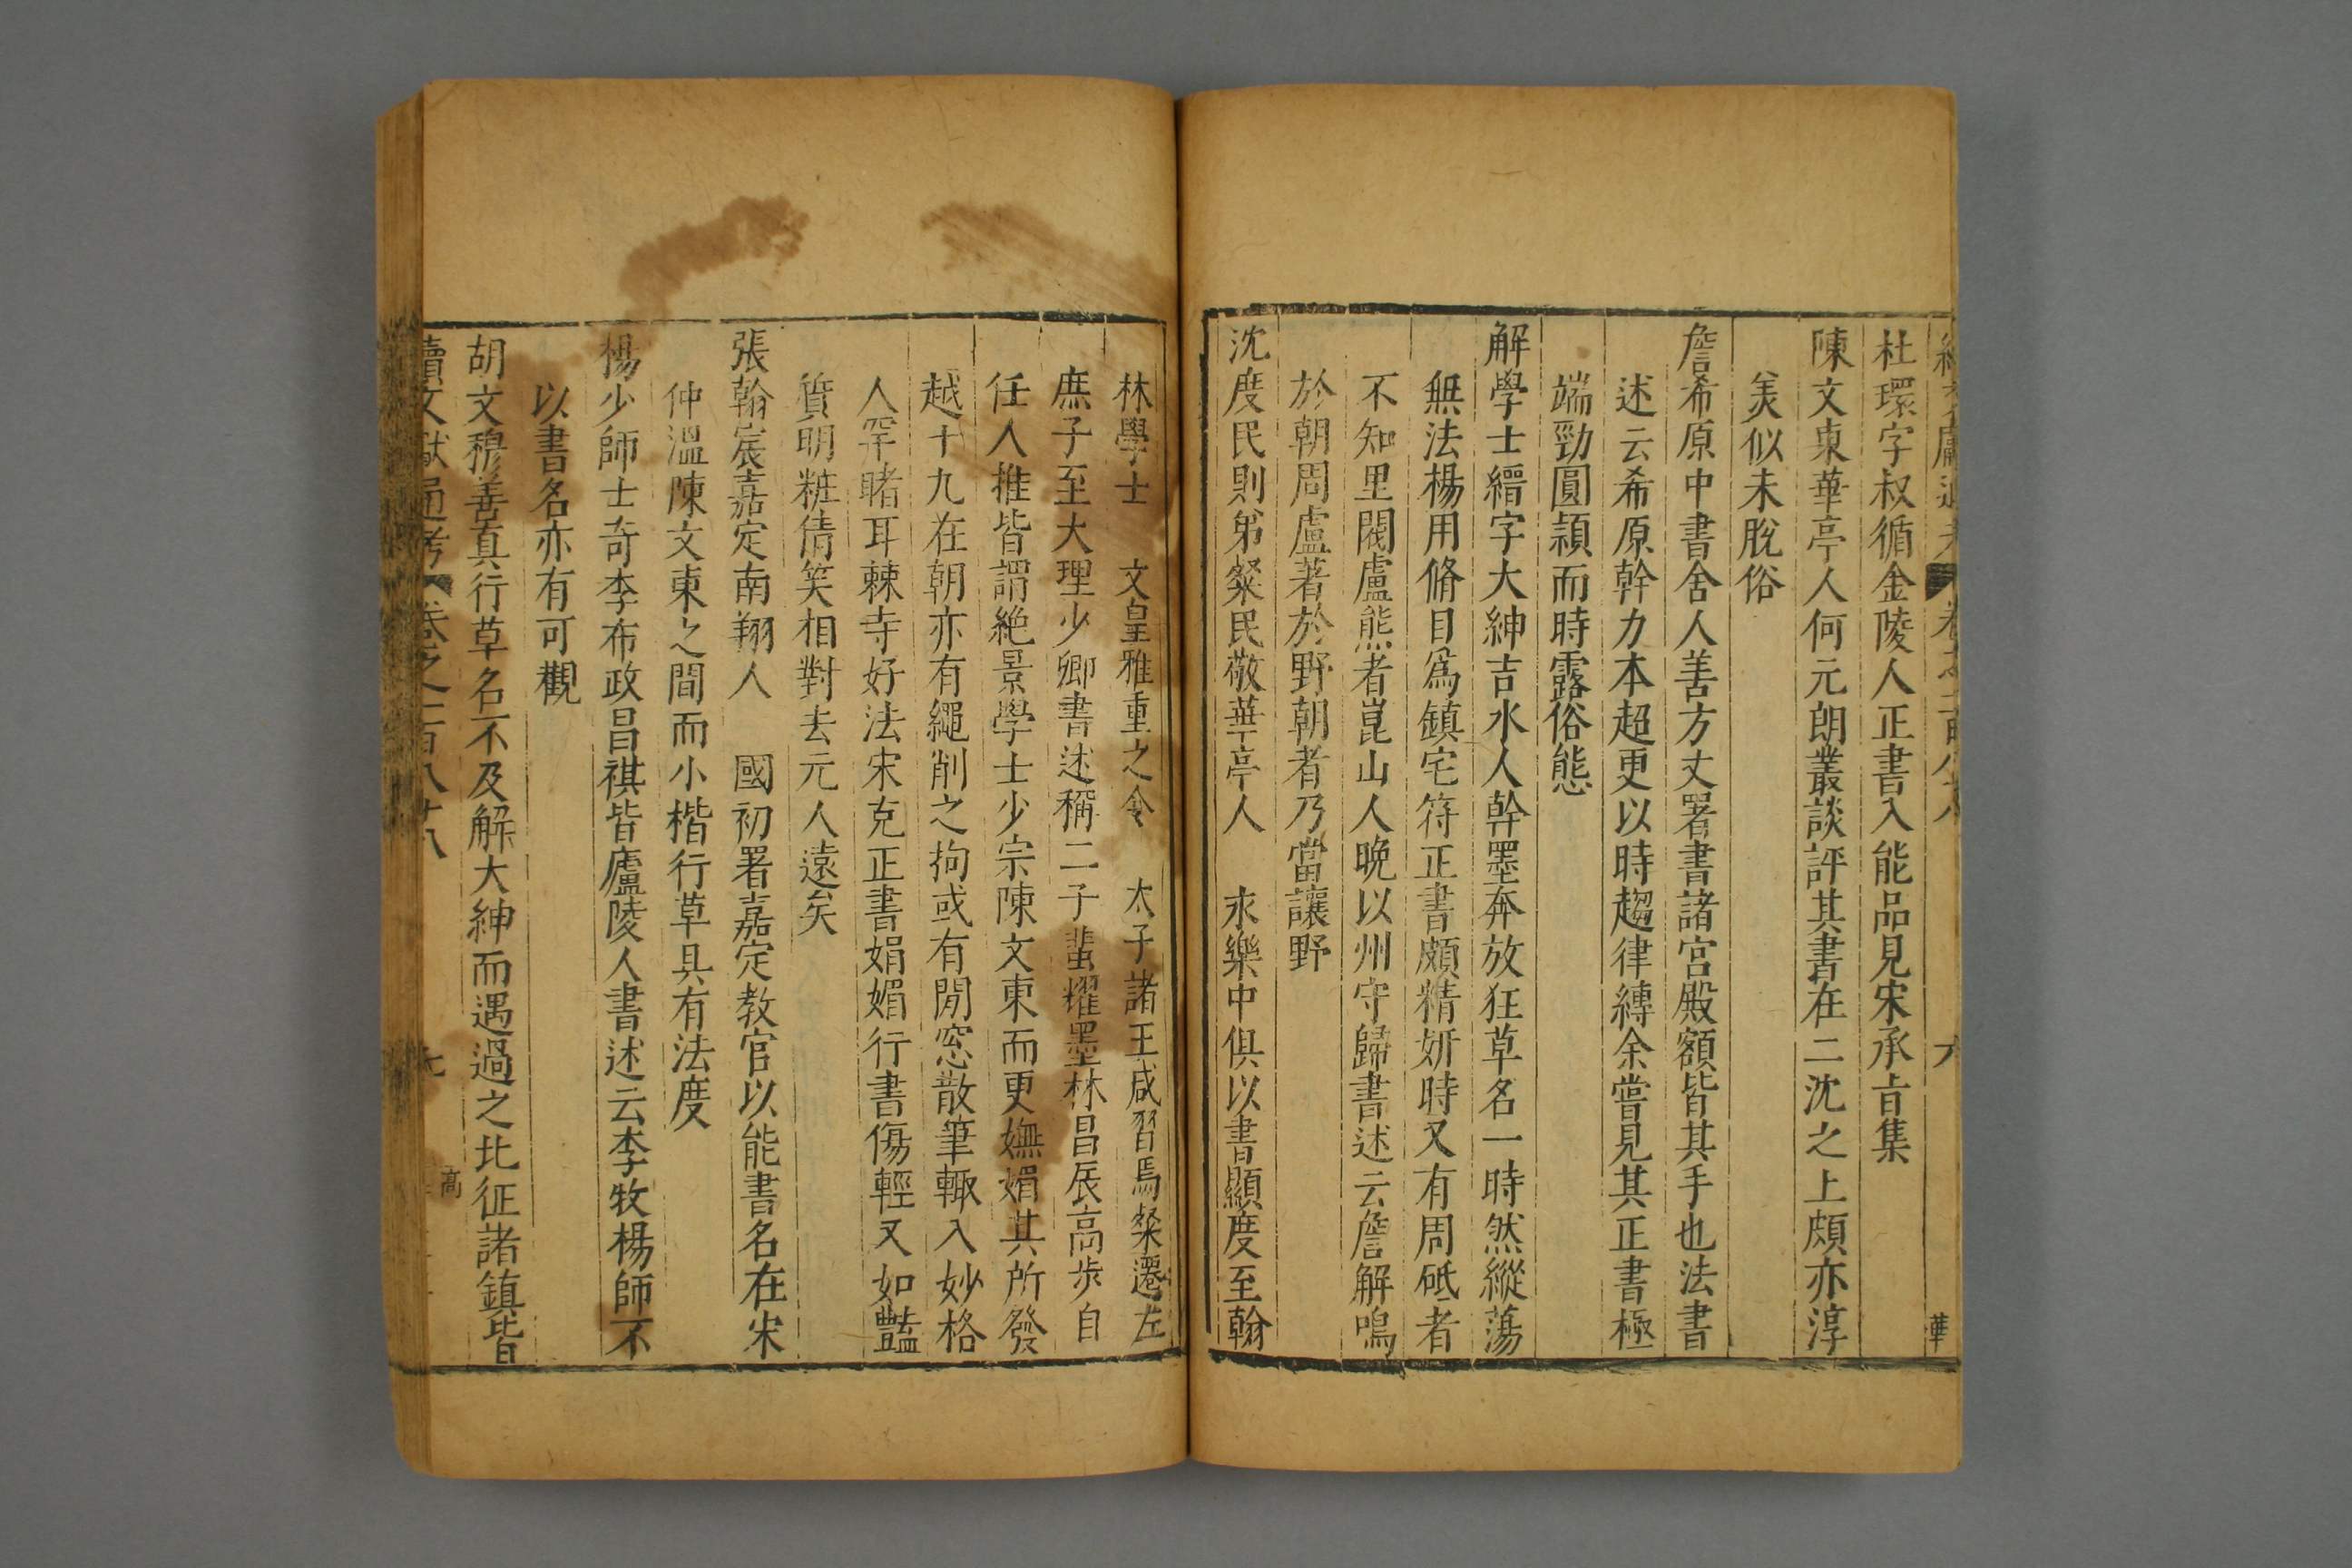 杜環字叔循金陵人正書入能品見宋承旨集
陳文東華亭人何元朗叢談評其書在二沈之上頗亦淳
美似未脫俗
詹希原中書舍人善方丈署書諸宮殿額皆其手也法書
述云希原幹力本超更以時趨律縛余嘗見其正書極
端勁圓頴而時露俗態
解學士縉字大紳吉水人幹墨奔放狂草名一時然縱蕩
無法楊用脩目爲鎮宅符正書頗精妍時又有周砥者
不知里閥盧熊者崑山人晚以州守歸書述云詹解鳴
於朝周盧著於野朝者乃當讓野
沈度民則弟粲民敬華亭人 永樂中俱以書顯度至翰
林學士 文皇雅重之令 太子諸王咸習焉粲遷左
庶子至大理少卿書述稱二子蜚耀墨林昌辰高步自
任人推皆謂絶景學士少宗陳文東而更嫵媚其所發
越十九在朝亦有繩削之拘或有閒窓散筆輙入妙格
人罕睹耳棘寺好法宋克正書娟媚行書傷輕又如豔
質明粧倩笑相對去元人遠矣
張翰宸嘉定南翔人 國初署嘉定教官以能書名在宋
仲溫陳文東之間而小楷行草具有法度
楊少師士奇李布政昌祺皆廬陵人書述云李牧楊師不
以書名亦有可觀
胡文穆善真行草名不及解大紳而遇過之北征諸鎮皆
續文獻通考 卷之一百八十八 七 高